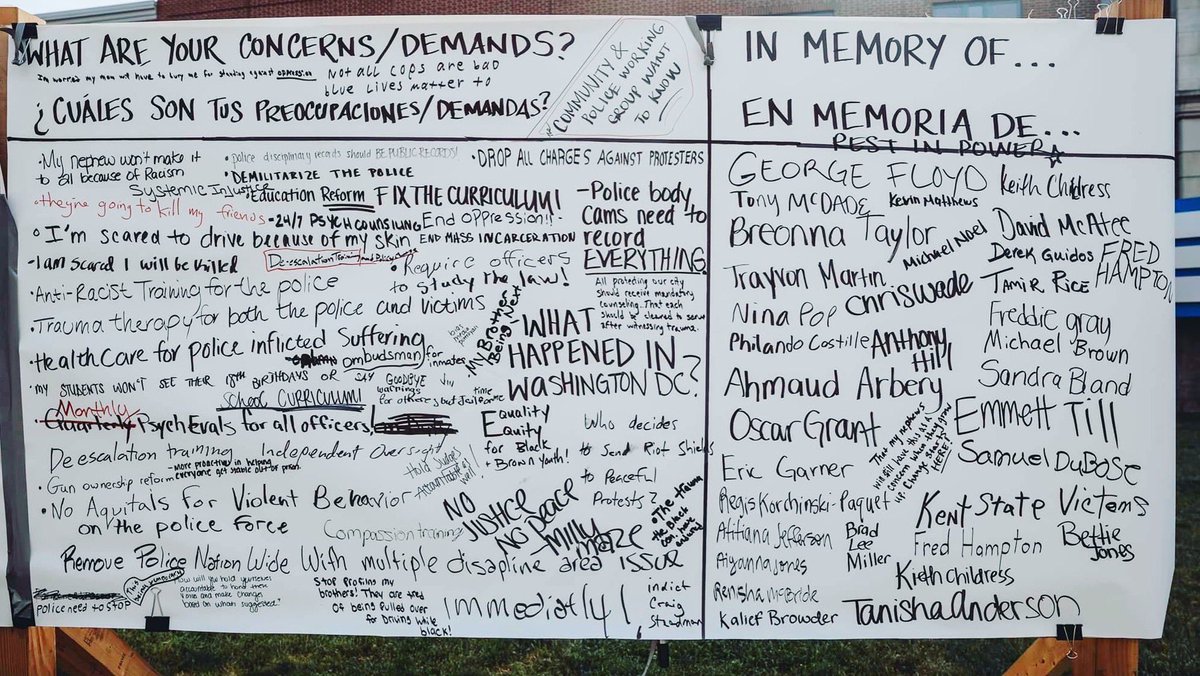 WHAT ARE YOUR CONCERNS/DEMANDS?
Not all cops are bad
blue lives matter to
¿CUÁLES SON TUS PREOCUPACIONES/DEMANDAS?
COMMUNITY &
POLICE WORKING
GROUP WANT
TO KNOW
• My nephew won't make it
to all because of Racism
Systemic Injustice
• they're going to kill my friends
• I'm scared to drive because of my skin
- I am scared I will be killed
• police disciplinary records should BE PUBLIC RECORDS!
• DEMILITARIZE THE POLICE
• Education Reform
FIX THE CURRICULUM!
- 24/7 PSYCH COUNSILING
End oppression!!
END MASS INCARCERATION
De-escalation Training
• DROP ALL CHARGES AGAINST PROTESTERS
- Police body
cams need to
record
EVERYTHING
• Require officers
to study the law!
• Anti-Racist Training for the police
• Trauma therapy for both the police and victims
• Health Care for police inflicted Suffering
ombudsman for
inmates
My Brother
Being Next
All protecting our city
should receive mandatory
counseling. That each
should be cleared to serve
after witnessing trauma.
WHAT
HAPPENED IN
WASHINGTON DC?
• MY STUDENTS WON'T SEE THEIR 18TH BIRTHDAYS OR SAY GOODBYE
SCHOOL CURRICULUM!
warnings
for others but Jail for me
time
Monthly
• Quarterly Psych Evals for all officers!
Equality
Equity
for Black
+ Brown Youth!
Who decides
to Send Riot Shields
to Peaceful
Protests?
De escalation training
Independent Oversight
- more proactive in helping
everyone get

• Gun ownership reform
Hold Judges
Accountable
• No Aquitals for Violent Behavior
on the police force
Compassion training
NO
JUSTICE
NO PEACE
- MILLY
mAZE
• The trauma
the Black
can have
Remove Police Nation Wide With multiple disapline area issue
Immediatly!
police need to STOP
This
How will you hold yourselves
accountable to honor these
voices and make changes
based on whats suggested?
Stop profiling my
brothers! They are tired
of being Pulled over
for Driving while
black!
indict
Craig
Steadman
IN MEMORY OF...
EN MEMORIA DE...
REST IN POWER
GEORGE FLOYD
Keith Childress
Tony McDADE
Kevin Matthews
Breonna Taylor
Michael Noel
David McAtee
Derek Guidos
FRED
HAMPTON
Trayvon Martin
Chris Wade
Tamir Rice
Nina Pop
Freddie Gray
Philando Castille
Anthony
Hill
Michael Brown
Ahmaud Arbery
Sandra Bland
Oscar Grant
Emmett Till
Samuel DuBose
That my nephews
will have this as a
concern when they grow
up. Change starts
HERE!
Eric Garner
Regis Korchinski-Paquet
Kent State Victims
Atitiana Jefferson
Brad
Lee
Miller
Fred Hampton
Bettie
Jones
Aiyanna Jones
Kieth childress
Renisha McBride
Kalief Browder
Tanisha Anderson